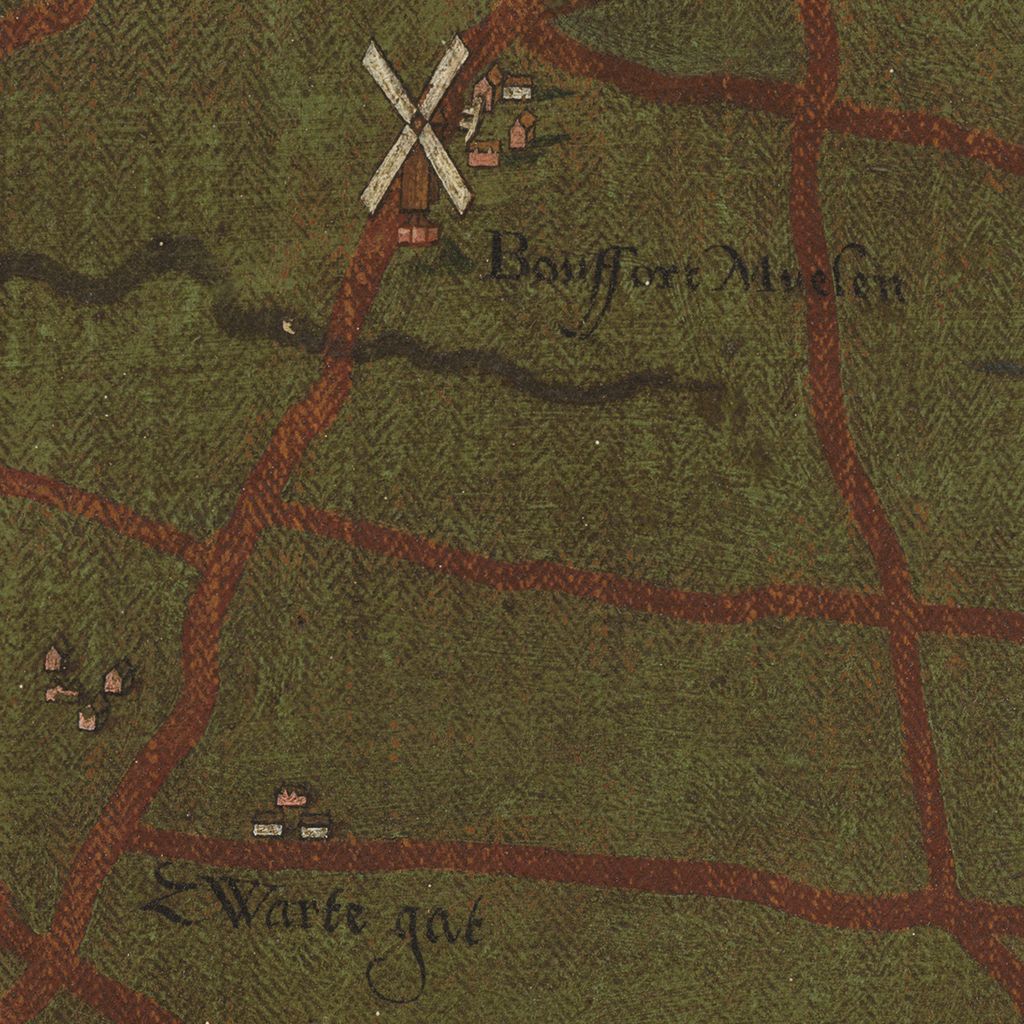 Bouffort Muelen
ZWarte gat